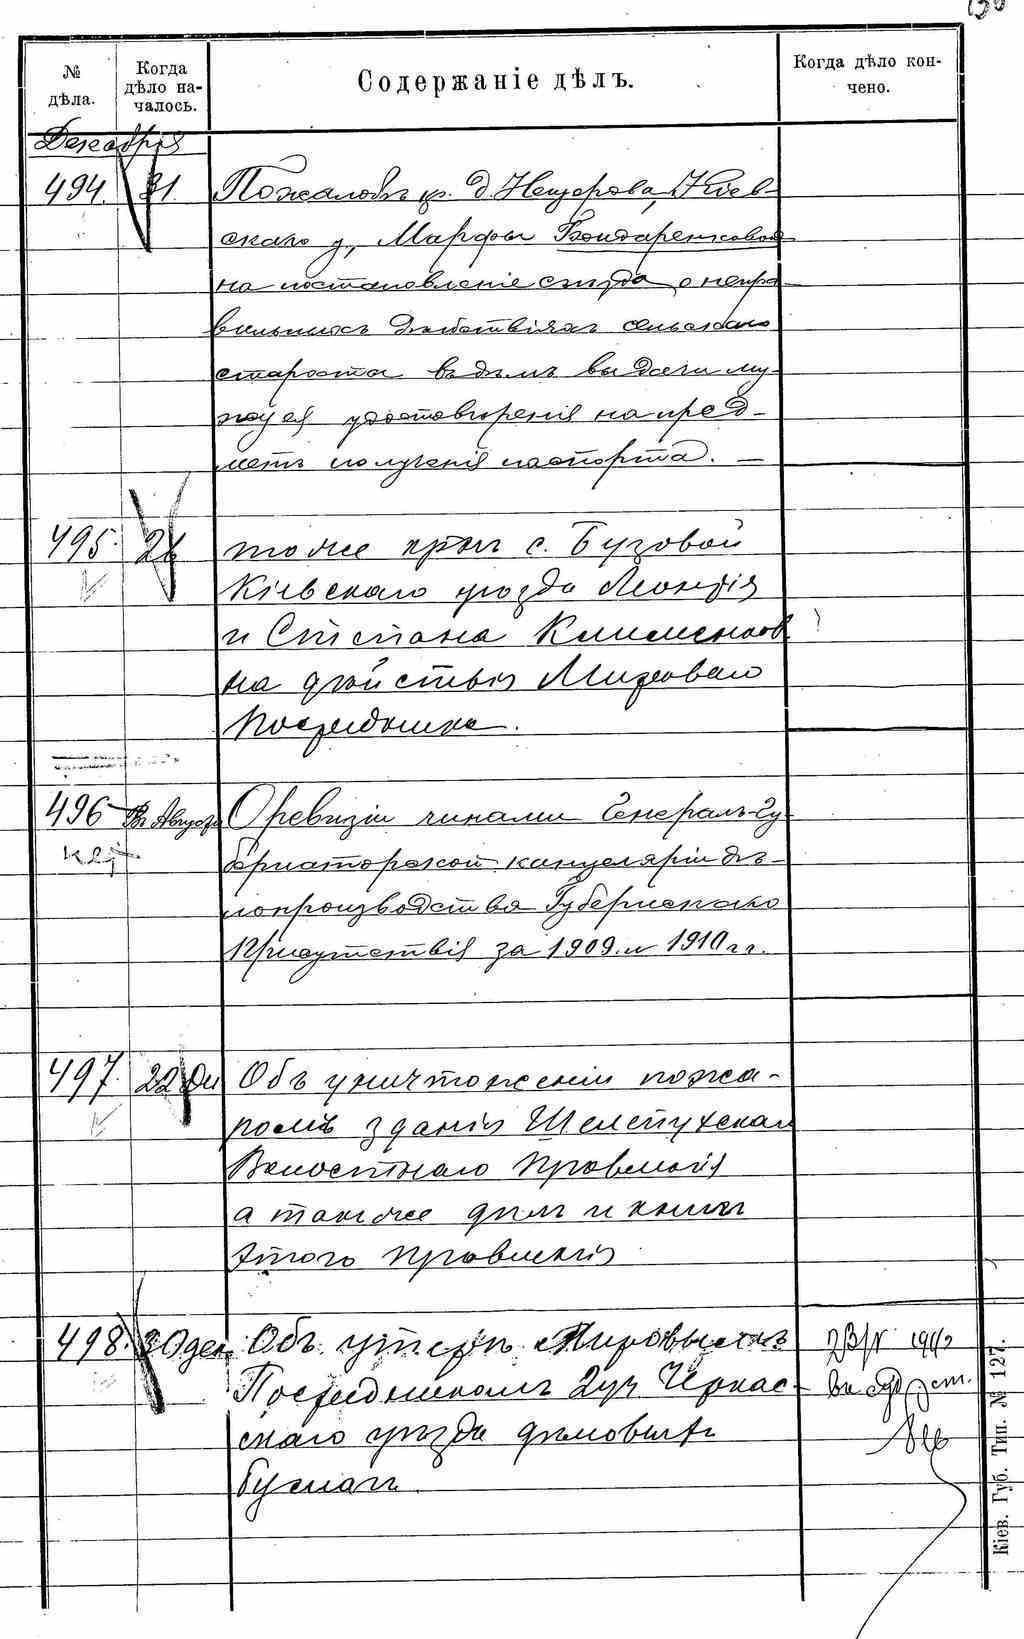 № дѣла.
Когда дѣло началось.
Содержаніе дѣлъ.
Когда дѣло кончено.
Декабря
494. 31. По жалобѣ кр. д. Нещерова, Кіев-
скаго у., Марфы Бондаренковой
на постановленіе съѣзда о непра-
вильныхъ дѣйствіяхъ сельскаго
старосты въ дѣлѣ выдачи му-
жу ея удостовѣренія на пред-
метъ полученія паспорта. —
495. 26 тоже кр-нъ с. Бузовой
Кіевскаго уѣзда Леонтія
и Степана Клименков.
на дѣйствія Мирового
Посредника.
496 Въ Августѣ О ревизіи чинами Генералъ-Гу-
бернаторской канцеляріи дѣ-
лопроизводства Губернскаго
Присутствія за 1909 и 1910 г.г.
497. 22 Дек Объ уничтоженіи пожа-
ромъ зданія Шелепухскаго
Волостного Правленія
а также дѣлъ и книгъ
этого правленія
498. 30 дек. Объ утерѣ Мировымъ
Посредникомъ 2 уч Черкас-
скаго уѣзда дѣловыхъ
бумагъ.
Кіев. Губ. Тип. № 127.